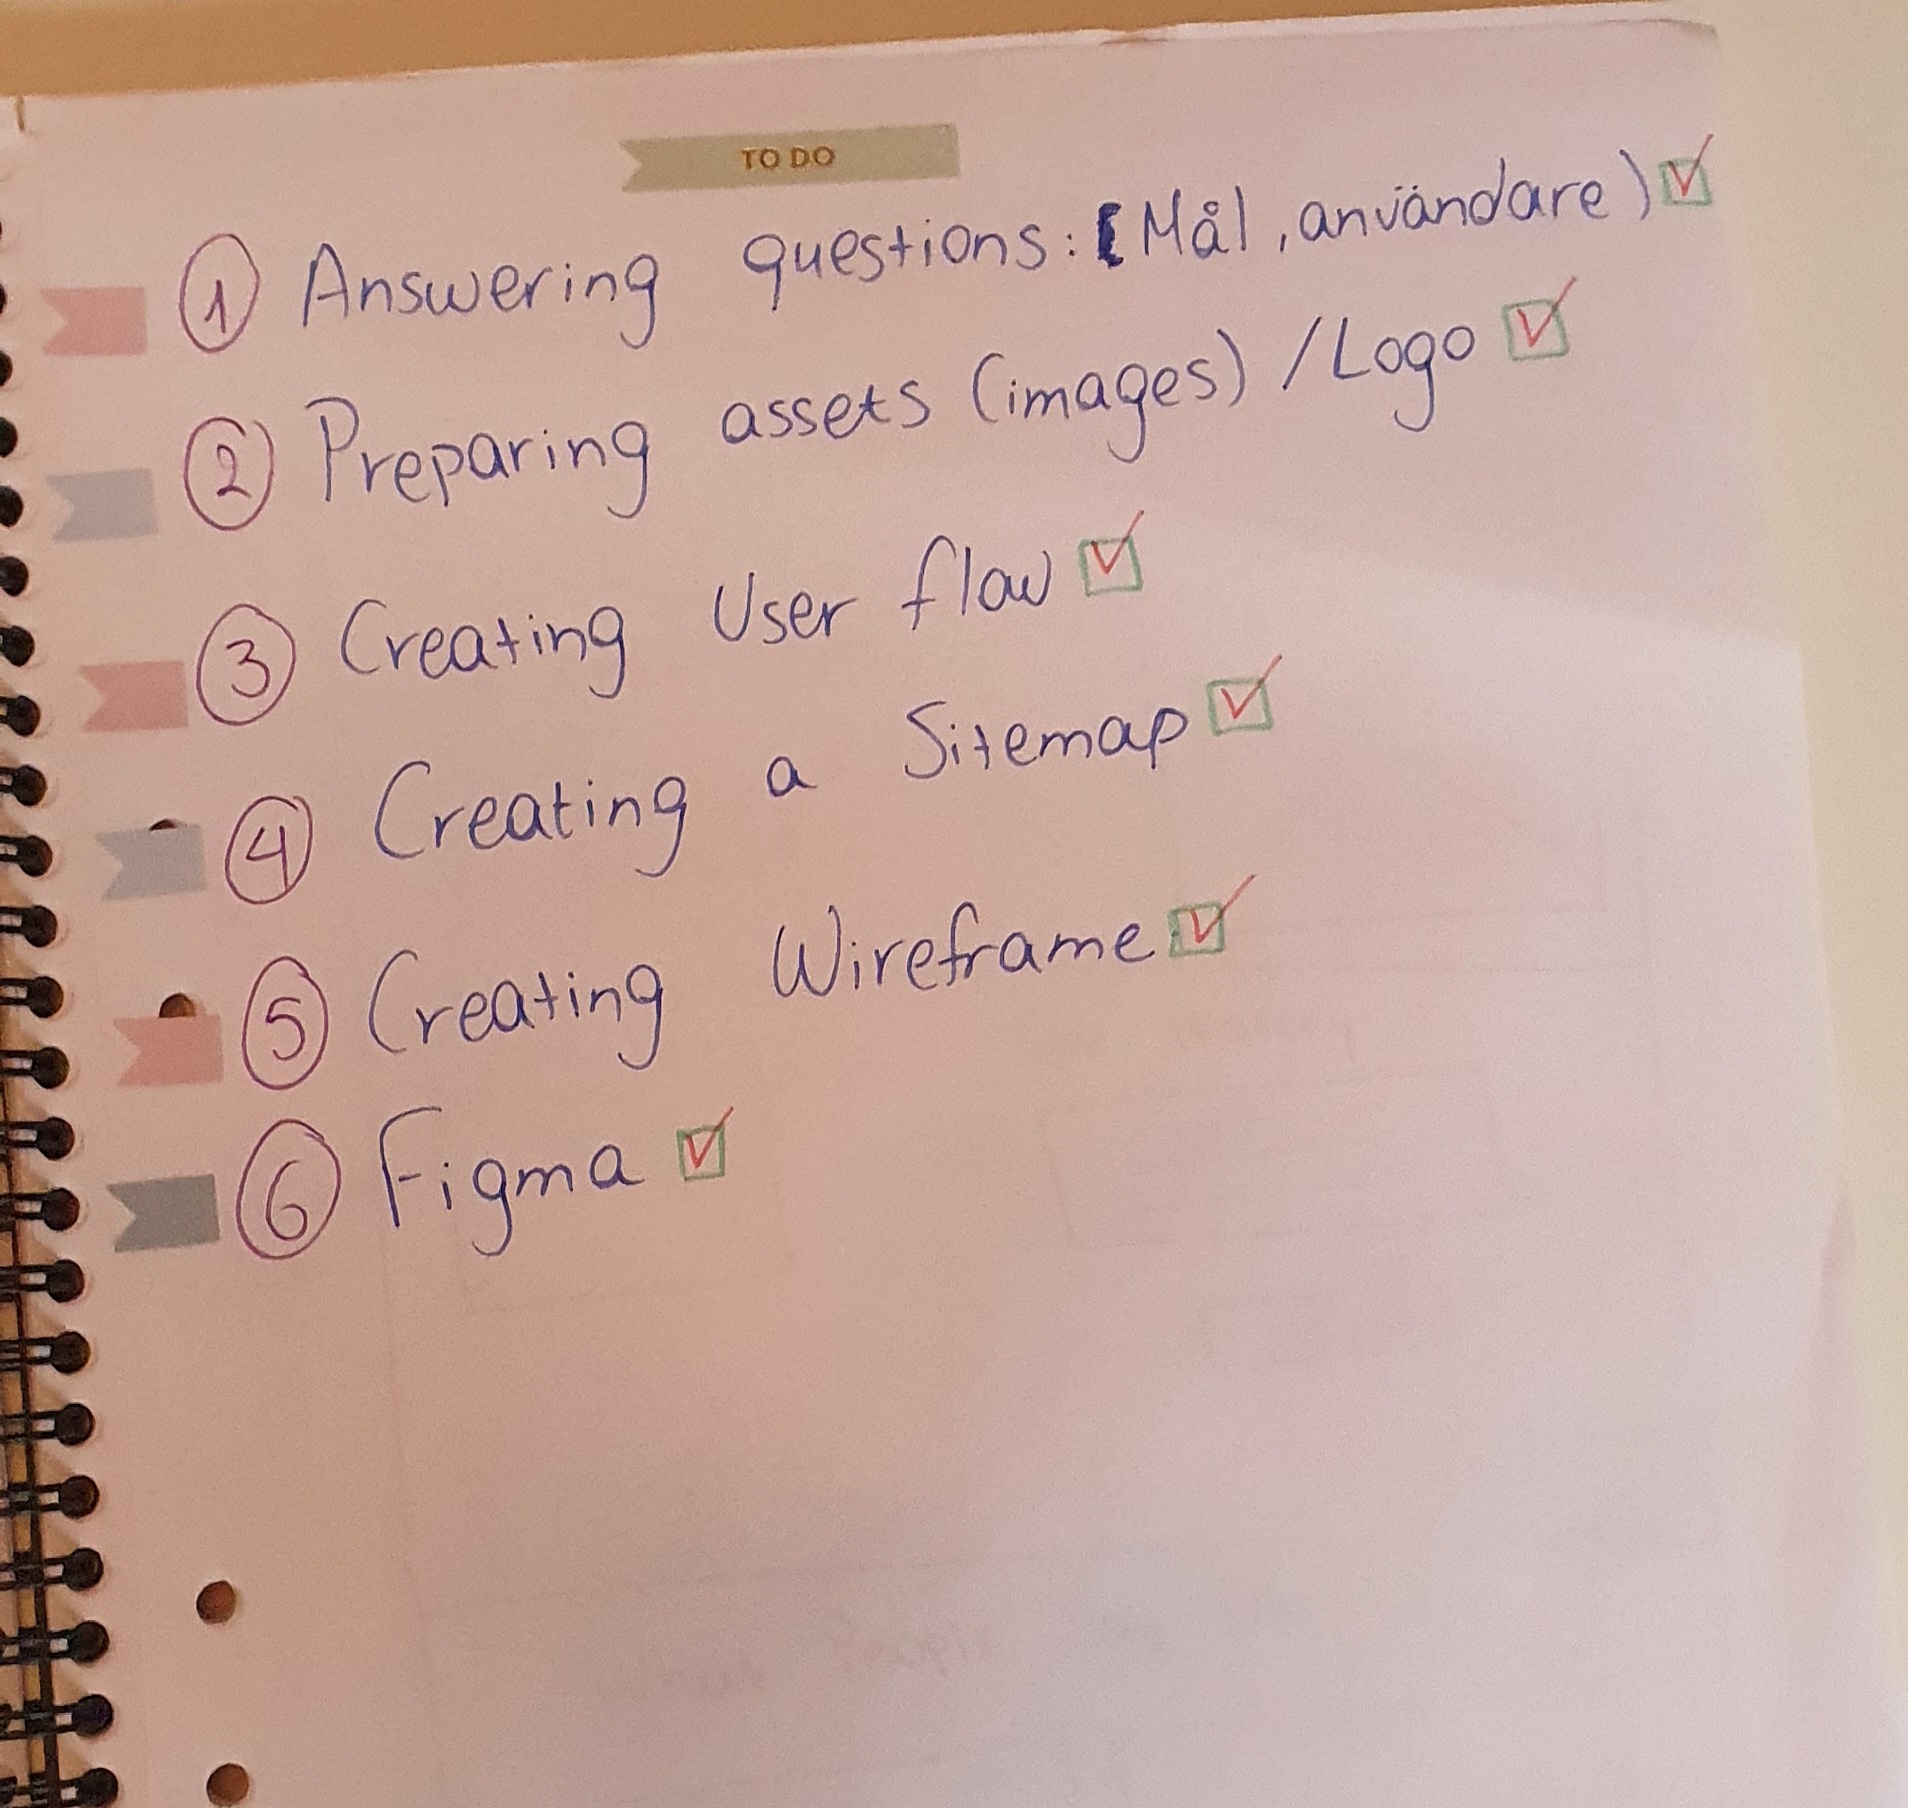 TO DO
1 Answering questions: (Mål, användare) ☑
2 Preparing assets (images) / Logo ☑
3 Creating User flow ☑
4 Creating a Sitemap ☑
5 Creating Wireframe ☑
6 Figma ☑